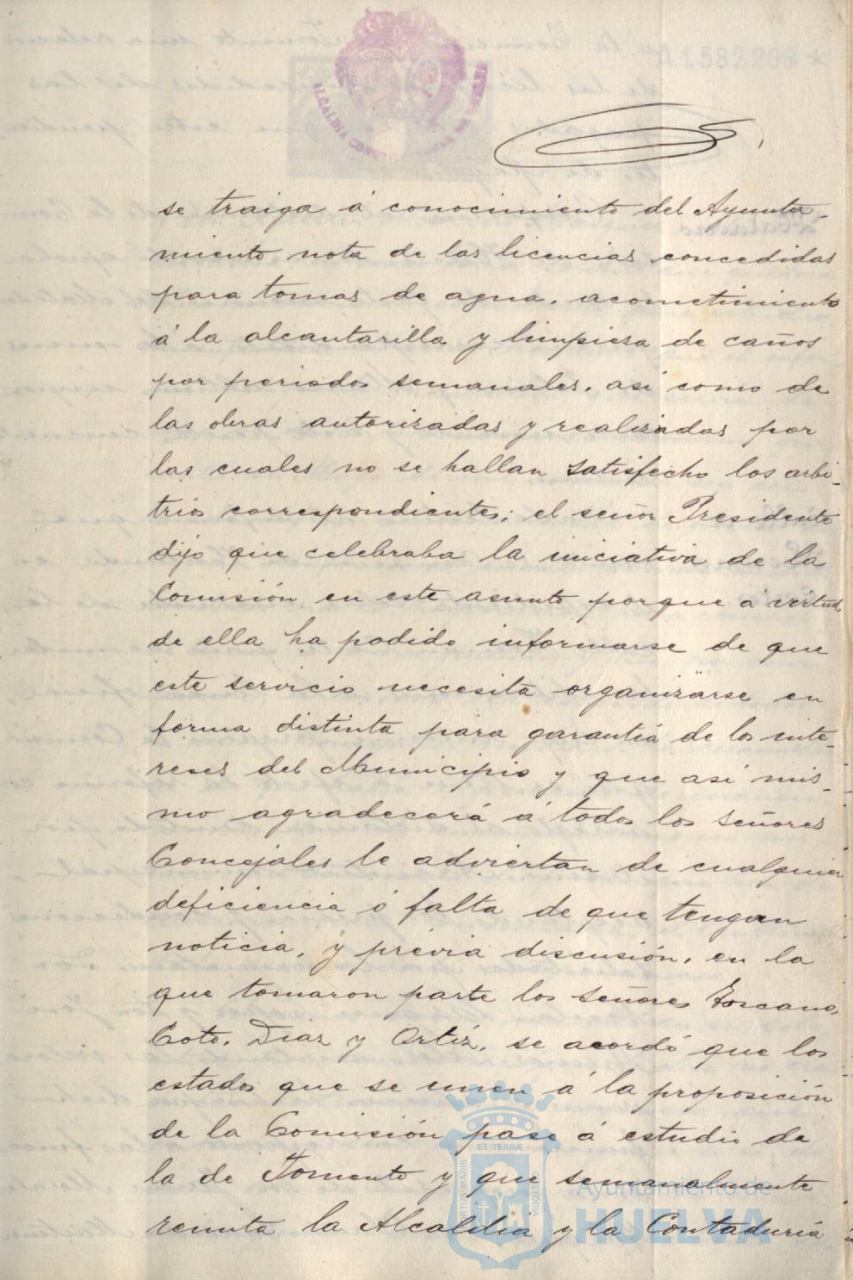 se traiga á conocimiento del Ayunta-
miento nota de las licencias concedidas
para tomas de agua, acometimiento
á la alcantarilla y limpieza de caños
por periodos semanales, así como de
las obras autorizadas y realizadas por
las cuales no se hallan satisfecho los arbi-
trios correspondientes; el señor Presidente
dijo que celebraba la iniciativa de la
Comisión en este asunto porque á virtud
de ella ha podido informarse de que
este servicio necesita organizarse en
forma distinta para garantía de los inte-
reses del Municipio y que así mis-
mo agradecerá á todos los señores
Concejales le adviertan de cualquier
deficiencia ó falta de que tengan
noticia, y prévia discusión, en la
que tomaron parte los señores Toscano,
Coto, Diaz y Ortíz, se acordó que los
estados que se unen á la proposición
de la Comisión pase á estudio de
la de Fomento y que semanalmente
remita la Alcaldía y la Contaduría
Ayuntamiento de
HUELVA